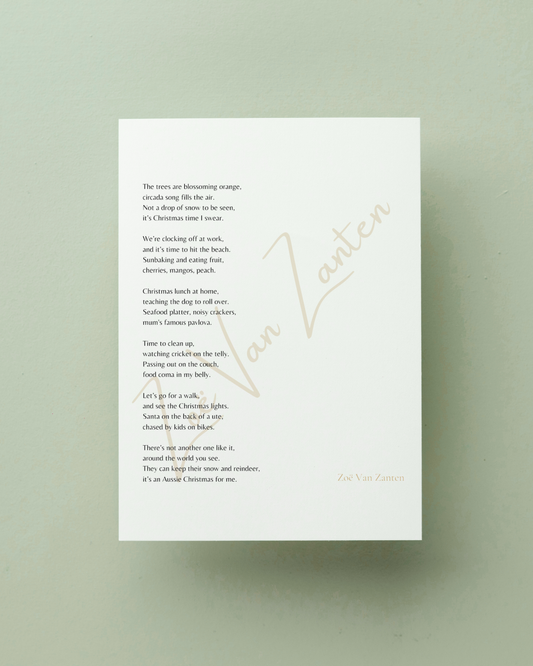 The trees are blossoming orange,
circada song fills the air.
Not a drop of snow to be seen,
it's Christmas time I swear.
We're clocking off at work,
and it's time to hit the beach.
Sunbaking and eating fruit,
cherries, mangos, peach.
Christmas lunch at home,
teaching the dog to roll over.
Seafood platter, noisy crackers,
mum's famous pavlova.
Time to clean up,
watching cricket on the telly.
Passing out on the couch,
food coma in my belly.
Let's go for a walk,
and see the Christmas lights.
Santa on the back of a ute,
chased by kids on bikes.
There's not another one like it,
around the world you see.
They can keep their snow and reindeer,
it's an Aussie Christmas for me.
Zoë Van Zanten
Zoë Van Zanten